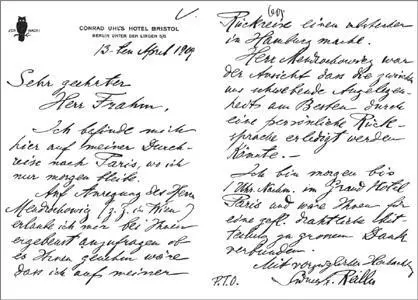 CONRAD UHL'S HOTEL BRISTOL
BERLIN UNTER DEN LINDEN 5/6
13. ten April 1909
Sehr geehrter
Herr Frahm.
Ich befinde mich
hier auf meiner Durch-
reise nach Paris, wo ich
nur morgen bleibe.
Auf Anregung des Herrn
Mendrochowig (z. Z. in Wien)
erlaube ich mir bei Ihnen
ergebenst anzufragen ob
es Ihnen genehm wäre
dass ich auf meiner
Rückreise einen
in Hamburg mache.
Herr Mendrochowig war
der Ansicht dass die zwischen
uns schwebende Angelegen-
heit am Besten durch
eine persönliche Rück-
sprache erledigt werden
könnte. —
Ich bin morgen bis
1 Uhr Nachm. im Grand Hotel
Paris und wäre Ihnen für
eine gefl. drahtliche Mit-
teilung zu grossem Dank
verbunden.
Mit vorzüglicher Hochachtung
Sidney G. Reilly
P.T.O.